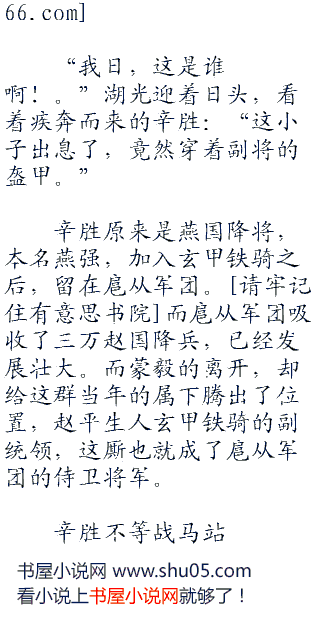 66.com]
“我日，这是谁
啊！。”湖光迎着日头，看
着疾奔而来的辛胜：“这小
子出息了，竟然穿着副将的
盔甲。”
辛胜原来是燕国降将，
本名燕强，加入玄甲铁骑之
后，留在扈从军团。[请牢记
住有意思书院]而扈从军团吸
收了三万赵国降兵，已经发
展壮大。而蒙毅的离开，却
给这群当年的属下腾出了位
置，赵平生人玄甲铁骑的副
统领，这厮也就成了扈从军
团的侍卫将军。
辛胜不等战马站
书屋小说网 www.shu05.com
看小说上书屋小说网就够了！